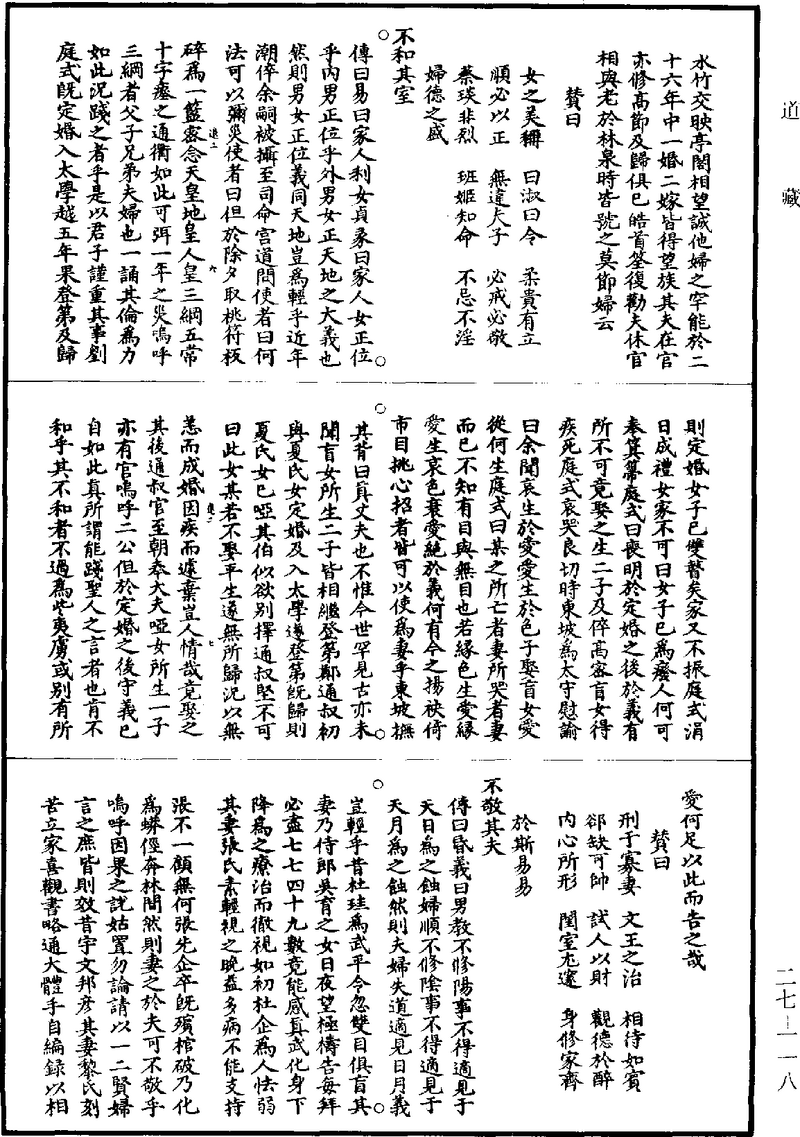 道藏
水竹交映亭閣相望誠他婦之罕能於二
十六年中一婚二嫁皆得望族其夫在官
亦修高節及歸俱已皓首筌復勸夫休官
相與老於林泉時皆號之莫節婦云
贊曰
女之美稱　曰淑曰令　柔貴有立
順必以正　無違夫子　必戒必敬
蔡琰非烈　班姬知命　不忌不淫
婦德之盛
不和其室
傳曰易曰家人利女貞彖曰家人女正位
乎內男正位乎外男女正天地之大義也
然則男女正位義同天地豈為輕乎近年
潮倅余嗣被攝至司命宮道問使者曰何
法可以彌災使者曰但於除夕取桃符板
碎為一籃密念天皇地皇人皇三綱五常
十字瘞之通衢如此可弭一年之災嗚呼
三綱者父子兄弟夫婦也一誦其倫為力
如此況踐之者乎是以君子謹重其事劉
庭式既定婚入太學越五年果登第及歸
則定婚女子已雙瞽矣家又不振庭式涓
日成禮女家不可曰女子已為癈人何可
奉箕箒庭式曰喪明於定婚之後於義有
所不可竟娶之生二子及倅高密盲女得
疾死庭式哀哭良切時東坡為太守慰諭
曰余聞哀生於愛愛生於色子娶盲女愛
從何生庭式曰某之所亡者妻所哭者妻
而已不知有目與無目也若緣色生愛緣
愛生哀色衰愛絕於義何有今之揚袂倚
市目挑心招者皆可以使為妻乎東坡撫
其背曰真丈夫也不惟今世罕見古亦未
聞盲女所生二子皆相繼登第鄭通叔初
與夏氏女定婚及入太學遂登第既歸則
夏氏女已啞其伯似欲別擇通叔堅不可
曰此女某若不娶平生遂無所歸況以無
恙而成婚因疾而遽棄豈人情哉竟娶之
其後通叔官至朝奉大夫啞女所生一子
亦有官嗚呼二公但於定婚之後守義已
自如此真所謂能踐聖人之言者也肯不
和乎其不和者不過為些夷虜或別有所
愛何足以此而告之哉
贊曰
刑于寡妻　文王之治　相待如賓
郤缺可帥　試人以財　觀德於醉
內心所形　閨室尤邃　身修家齊
於斯易易
不敬其夫
傳曰昏義曰男教不修陽事不得適見于
天日為之蝕婦順不修陰事不得適見于
天月為之蝕然則夫婦失道適見日月義
豈輕乎昔杜珪為武平令忽雙目俱盲其
妻乃侍郎吳育之女日夜望極禱告每拜
必盡七七四十九數竟能感真武化身下
降為之療治而徹視如初杜企為人怯弱
其妻張氏素輕視之晚益多病不能支持
張不一顧無何張先企卒既殯棺破乃化
為蟒徑奔林間然則妻之於夫可不敬乎
嗚呼因果之說姑置勿論請以一二賢婦
言之庶皆則效昔宇文邦彥其妻黎氏刻
苦立家喜觀書略通大體手自編錄以相
二七—一一八